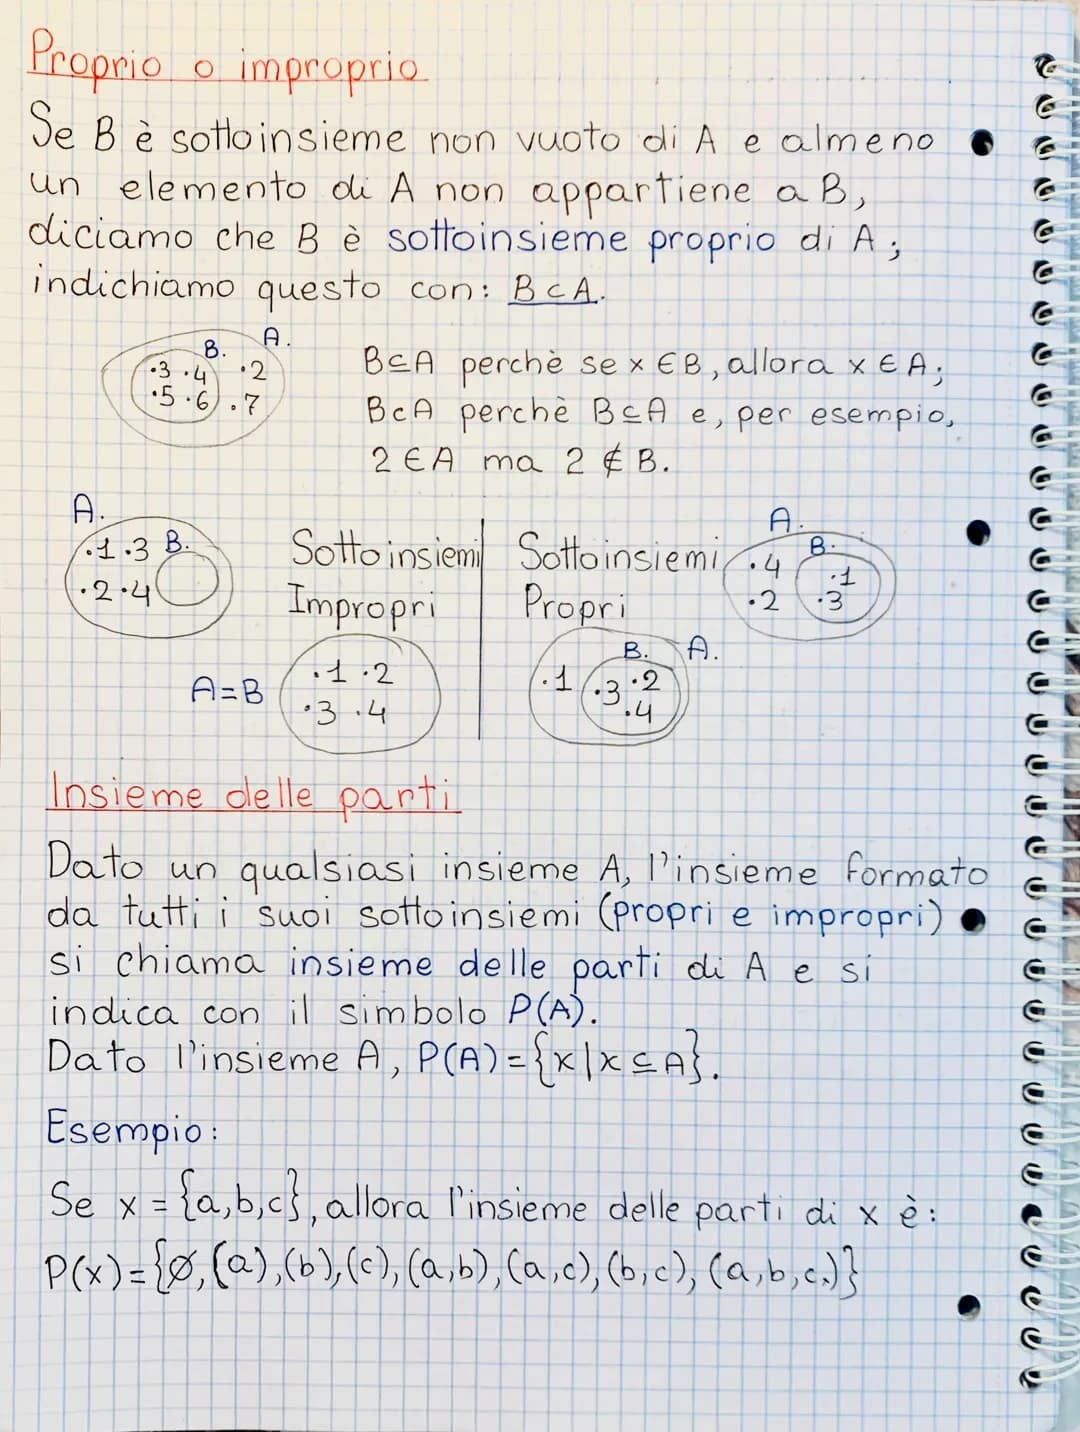 Proprio o improprio
Se B è sottoinsieme non vuoto di A e almeno
un elemento di A non appartiene a B,
diciamo che B è sottoinsieme proprio di A;
indichiamo questo con: B⊂A.
B. A.
.3 .4 .2
.5 .6 .7
B⊆A perchè se x ∈ B, allora x ∈ A;
B⊂A perchè B⊆A e, per esempio,
2 ∈ A ma 2 ∉ B.
A.
.1 .3 B.
.2 .4
Sottoinsiemi
Impropri
A=B
.1 .2
.3 .4
Sottoinsiemi
Propri
A.
B.
.4 .1
.2 .3
B. A.
.1 .3 .2
.4
Insieme delle parti
Dato un qualsiasi insieme A, l'insieme formato
da tutti i suoi sottoinsiemi (propri e impropri)
si chiama insieme delle parti di A e si
indica con il simbolo P(A).
Dato l'insieme A, P(A)={x|x⊆A}.
Esempio:
Se x = {a,b,c}, allora l'insieme delle parti di x è:
P(x)={∅,(a),(b),(c),(a,b),(a,c),(b,c),(a,b,c,)}